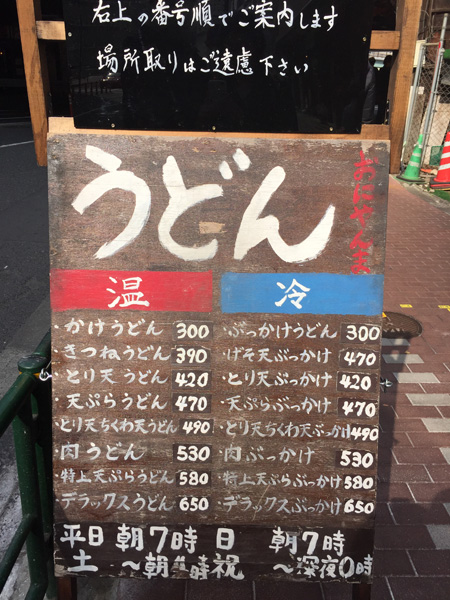 右上の番号順でご案内します
場所取りはご遠慮下さい
うどん
おにやんま
温
・かけうどん 300
・きつねうどん 390
・とり天うどん 420
・天ぷらうどん 470
・とり天ちくわ天うどん 490
・肉うどん 530
・特上天ぷらうどん 580
・デラックスうどん 650
冷
・ぶっかけうどん 300
・げそ天ぶっかけ 470
・とり天ぶっかけ 420
・天ぷらぶっかけ 470
・とり天ちくわ天ぶっかけ 490
・肉ぶっかけ 530
・特上天ぷらぶっかけ 580
・デラックスぶっかけ 650
平日 朝7時
土 〜朝4時
日 朝7時
祝 〜深夜0時